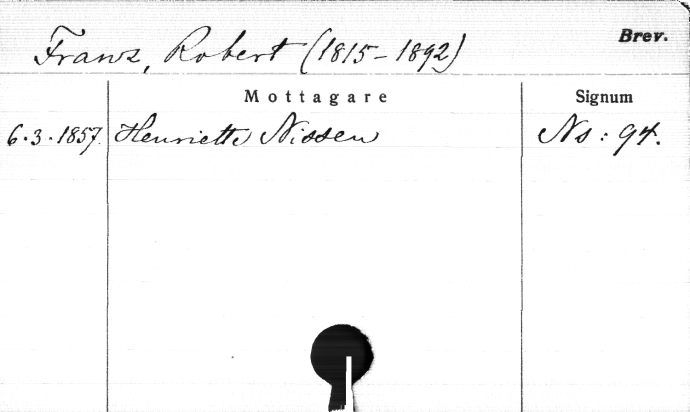 Franz, Robert (1815-1892)
Brev.
Mottagare
Signum
6.3.1857. Henriette Nissen Ns: 94.